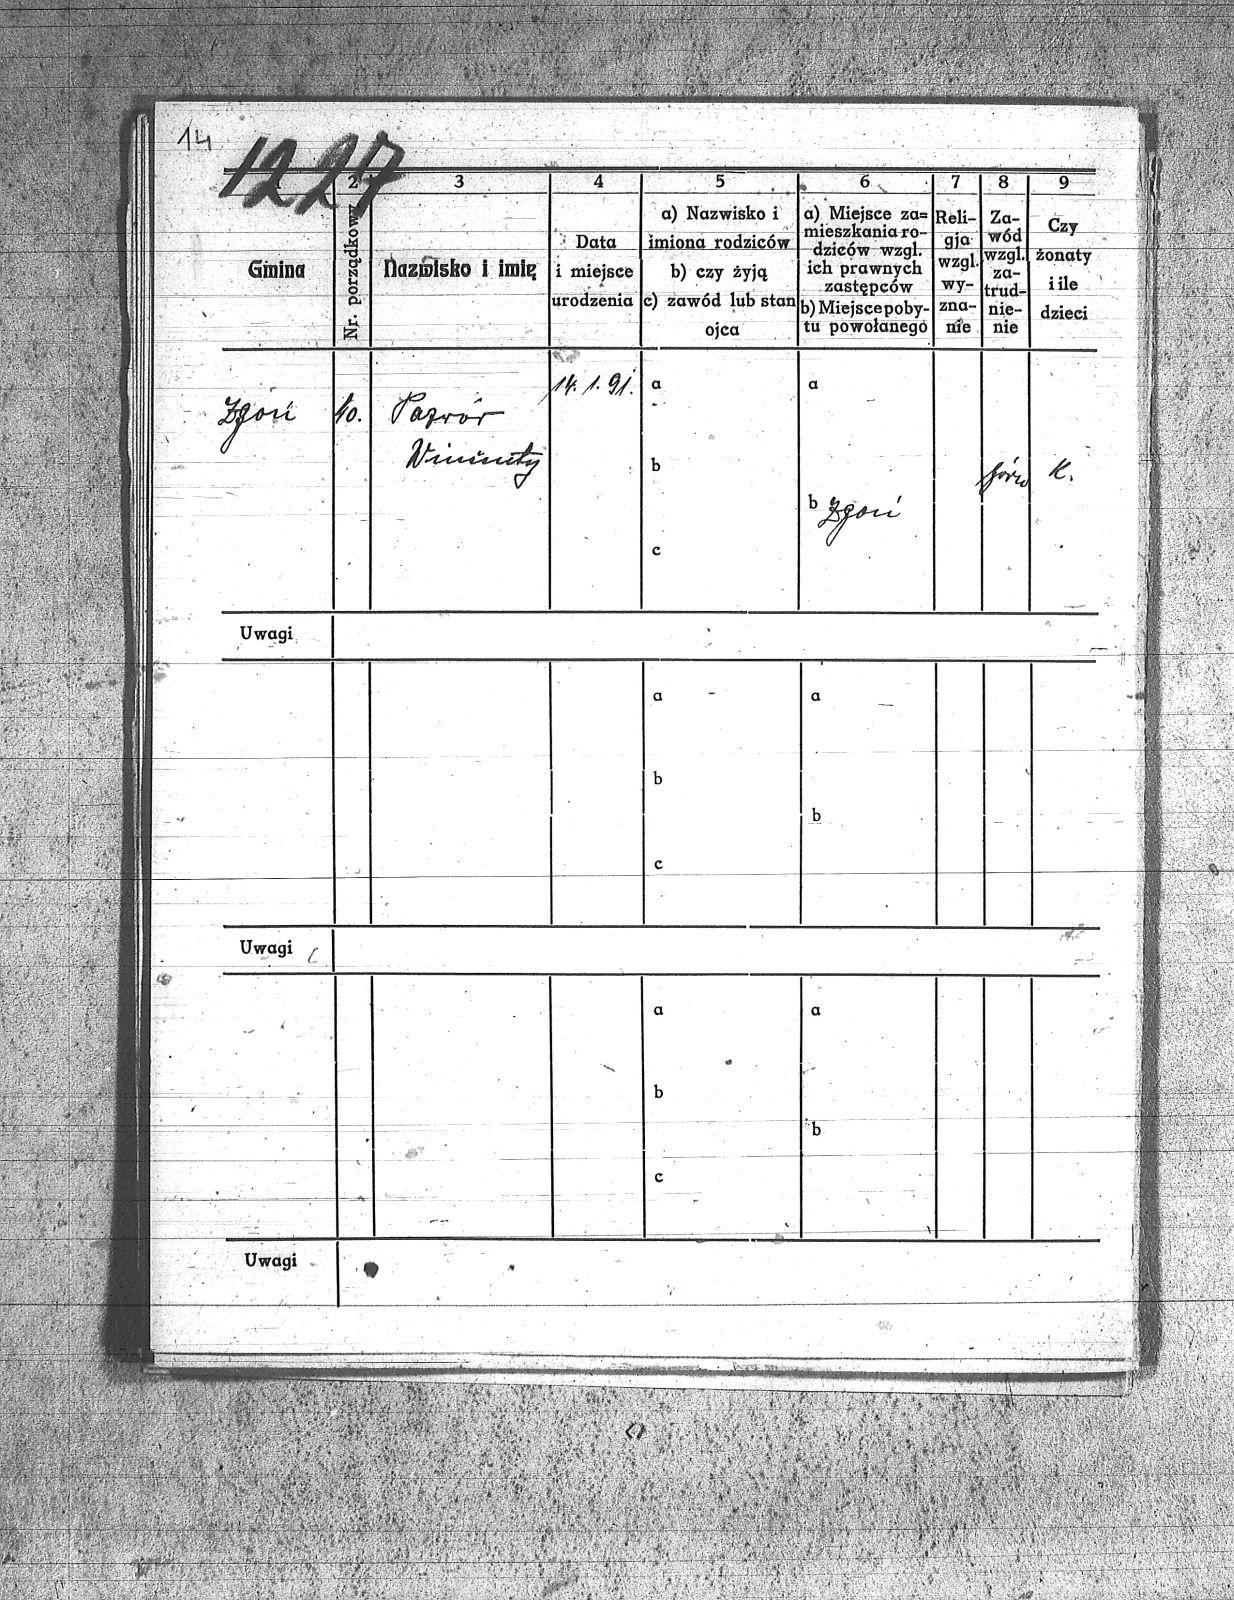 14
1227
1 2 3 4 5 6 7 8 9
Gmina
Nr. porządkowy
Nazwisko i imię
Data
i miejsce
urodzenia
a) Nazwisko i
imiona rodziców
b) czy żyją
c) zawód lub stan
ojca
a) Miejsce za=
mieszkania ro-
dziców wzgl.
ich prawnych
zastępców
b) Miejsce poby-
tu powołanego
Reli-
gja
wzgl.
wy-
zna-
nie
Za-
wód
wzgl.
za-
trud-
nie-
nie
Czy
żonaty
i ile
dzieci
Zgoń
10.
14. 1. 91.
a
a
b
K.
b Zgoń
c
Uwagi
a
a
b
b
c
Uwagi
a
a
b
b
c
Uwagi